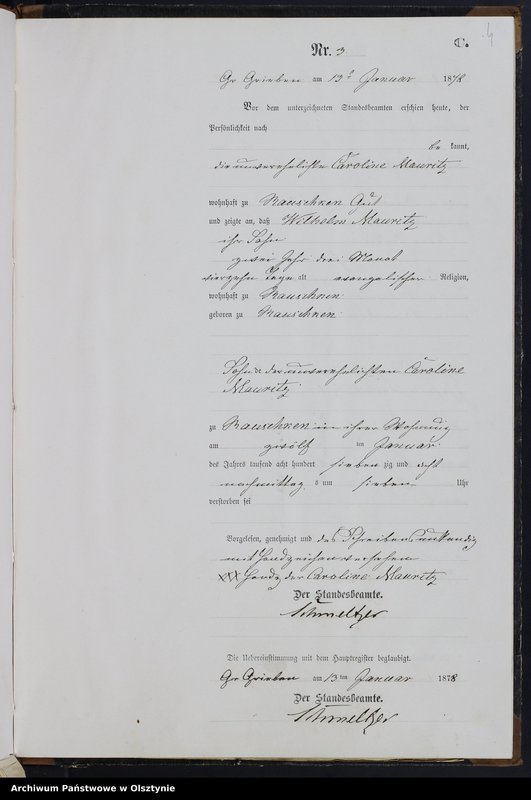 C.
Nr. 3.
Gr Grieben am 13ᵗ Januar 1878
Vor dem unterzeichneten Standesbeamten erschien heute, der
Persönlichkeit nach
be kannt,
die unverehelichte Caroline Mauritz
wohnhaft zu Rauschken Gut
und zeigte an, daß Wilhelm Mauritz
ihr Sohn
zwei Jahr drei Monat
vierzehn Tage alt evangelischer Religion,
wohnhaft zu Rauschken
geboren zu Rauschken
Sohn der unverehelichten Caroline
Mauritz
zu Rauschken in ihrer Wohnung
am zwölf ten Januar
des Jahres tausend acht hundert sieben zig und acht
nachmittag s um sieben Uhr
verstorben sei
Vorgelesen, genehmigt und des Schreibens unkundig
mit Handzeichen versehen
XXX Handz der Caroline Mauritz
Der Standesbeamte.
Schmeltzer
Die Uebereinstimmung mit dem Hauptregister beglaubigt.
Gr Grieben am 13 ten Januar 1878
Der Standesbeamte.
Schmeltzer
Archiwum Państwowe w Olsztynie